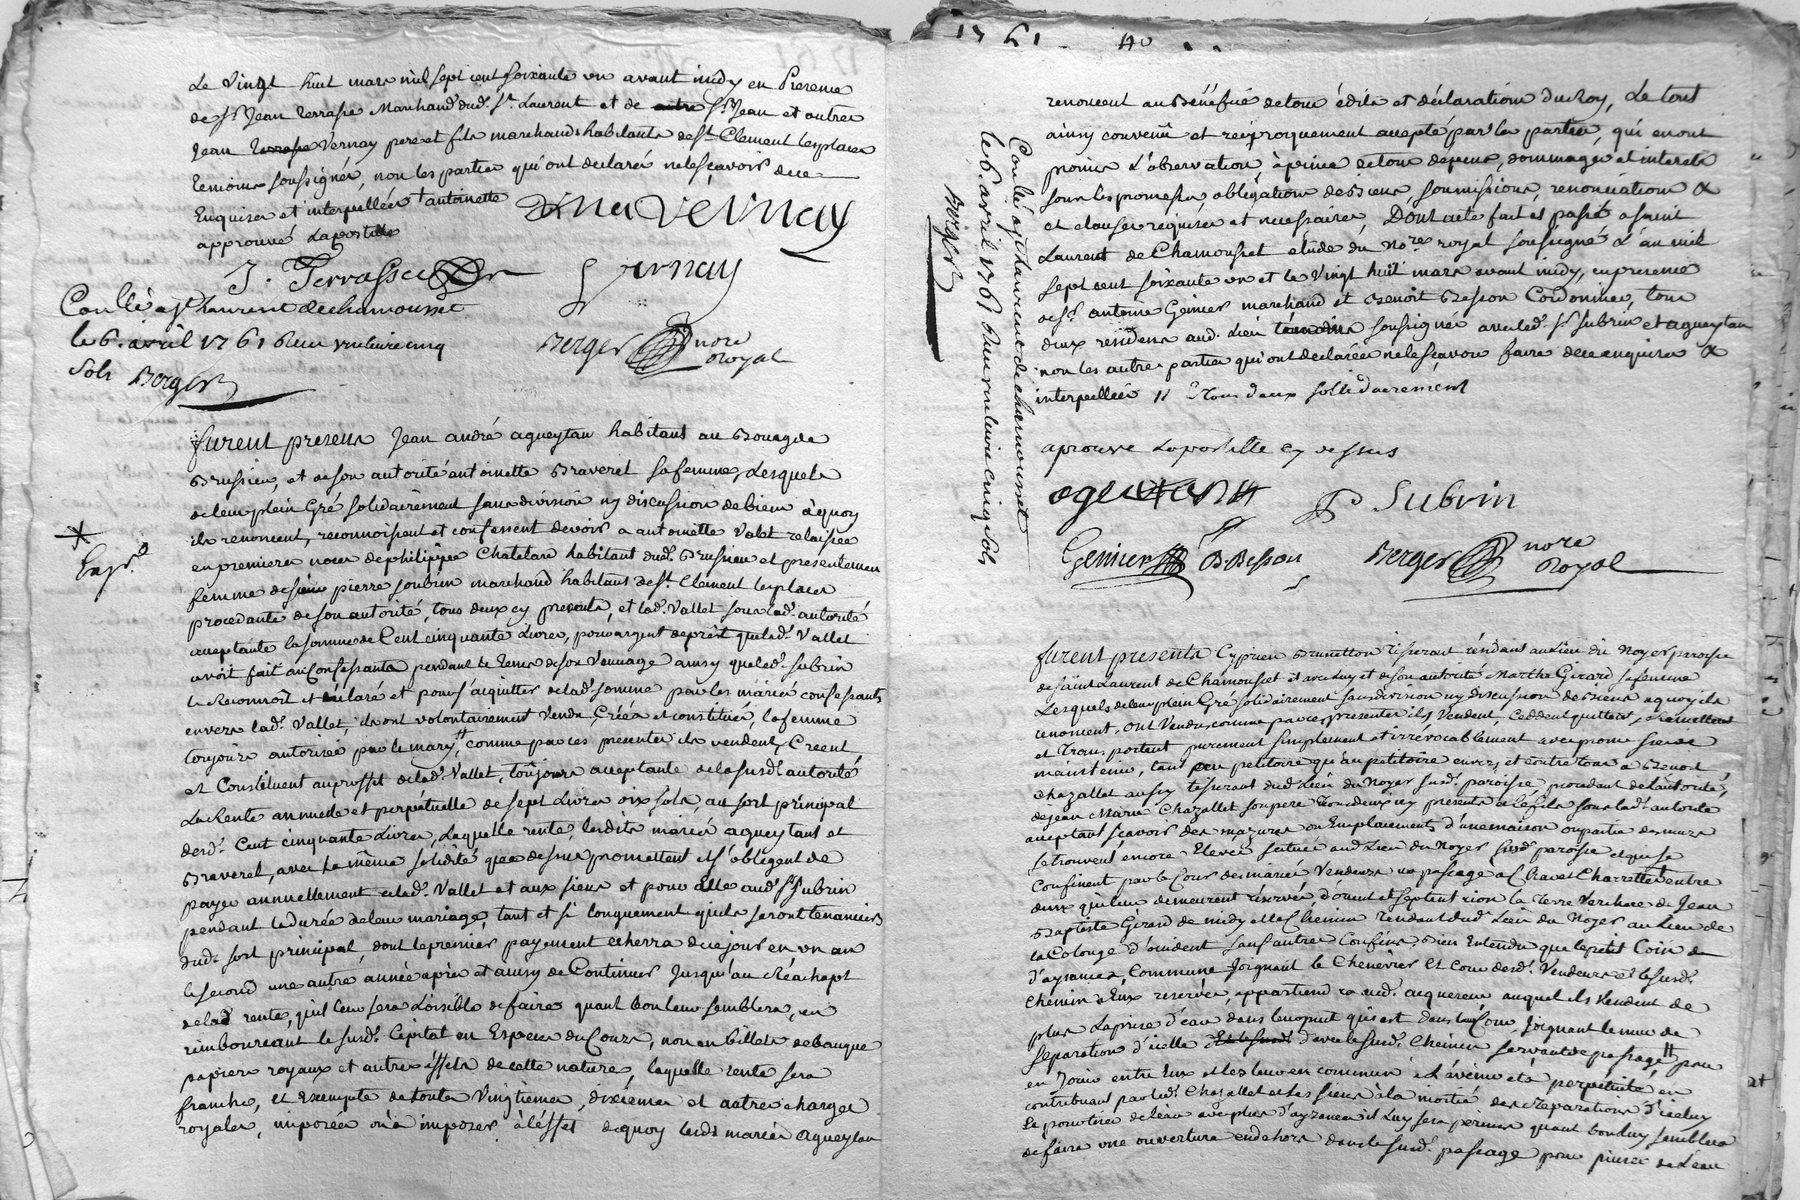 Le Vingt huit mars mil sept cent soixante un avant midy en Presence
de Sr Jean Terrasse Marchand dud. St Laurent et de Sr Jean et autre
Jean Vernay pere et fils marchands habitants de St Clement les places
temoins soussignés, non les parties qui ont declaré ne le sçavoir de ce
Enquises et interpellées † antoinette
approuvé la postille
Vernay
J. Terrasse
Vernay
Conllé a St Laurent de chamousset
le 6. avril 1761 Reçu vint cinq
sols Berger
Berger nore
Royal
furent presents Jean andré agueytan habitant au Bourg de
Brussieu, et de son autorité antoinette Braveret sa femme, Lesquels
de leur plein Gré solidairement sans division ny discussion de biens à quoy
ils renoncent, reconnoissent et confessent devoir a antoinette Valet relaissée
en premieres noces de philippe Chatelard habitant dud. Brussieu et presentement
femme de sieur pierre soubrin marchand habitant de St. Clement les places
procedante de son autorité, tous deux cy presents, et lad. Vallet sous lad. autorité
acceptante la somme de Cent cinquante Livres, pour argent de prest que lad. Vallet
avoit fait aux Confessants pendant le tems de son Veuvage ainsy que led. subrin
le Reconnoit et déclaré et pour s'aquitter de lad. somme par les mariés confessants
envers lad. Vallet, ils ont volontairement Vendu, Créés et constitué, la femme
toujours autorisée par le mary, comme par ces presentes ils vendent, Creent
et Constituent au proffit de lad. Vallet, toujours acceptante de la susd. autorité
La Rente annuelle et perpétuelle de sept Livres dix sols, au sort principal
desd. Cent cinquante Livres, Laquelle rente, lesdits mariés agueytant et
Braveret, avec la même solidité que dessus, promettent et s'obligent de
payer annuellement a lad. Vallet et aux siens et pour Elle aud. Sr Subrin
pendant la durée de leur mariage, tant et si longuement qu'ils seront tenanciers
dud. sort principal, dont le premier payement echerra de ce jour en un an
le second une autre année après et ainsy de Continuer Jusqu'au Réachept
de lad. rente, qu'il leur sera Loisible de faire quant bon leur semblera, en
rimboursant le susd. Capital en Especes du Cours, non en billets de banque
papiers royaux et autres éffets de cette nature, laquelle rente sera
franche, et Exempte de touts Vingtiemes, dixiemes et autres charges
royales, imposées ou à imposer, à l'éffet de quoy lesds mariés agueytan
1761
renoncent au Bénéfice de tous édits et déclarations du Roy, Le tout
ainsy convenû et reciproquement accepté par les parties, qui en ont
promis L'observation, à peine de tous depens, dommages et interets
sous les promesses, obligation de Biens, soumissions, renonciations &
et clauses requises et necessaires, Dont acte fait et passé a saint
Laurent de Chamousset etude du Nore royal soussigné L'an mil
sept cent soixante un et le Vingt huit mars avant midy, en presence
de Sr. antoine Genier marchand et Benoit Besson Cordonnier, tous
deux residens aud. Lieu temoins soussignés avec led. Sr Subrin et agueytan
non les autres parties qui ont declarées ne le sçavoir faire de ce enquises &
interpellées // Tous deux sollidairement
Conllé a St Laurent de chamousset
le 6. avril 1761 Reçu vint cinq sols
Berger
aprouve la postille cy dessus
agueitan
P Subrin
Genier B Besson Berger nore
Royal
furent presents Cyprien Brunetton tisserant résidant au Lieu du Noyer paroisse
de saint Laurent de Chamousset et avec luy et de son autorité Marthe Girard sa femme
Lesquels de leur plein Gré solidairement sans division ny discussion de Biens a quoy ils
renoncent, ont Vendu, comme par ces presentes ils Vendent, Ceddent quittent, remettent
et Transportent purement simplement et irrevocablement avec promesse de
maintenir, tant au petitoire qu'au petitoire envers et contre tous a Benoit
chazallet aussy tisserant dud. Lieu du Noyer susd. paroisse, procedant de l'autorité
de Jean Marie Chazallet son pere Tous deux cy presents et le fils sous lad. autorité
acceptant sçavoir des mazures ou Emplacements d'une maison ou partie des murs
se trouvent encore Elevés située aud Lieu du Noyer susd. paroisse et qui se
Confinent par la Cour des mariés Vendeurs un passage a Char et Charrette entre
deux qui leur demeurent réservés d'orient et septentrion la Terre Verchere de Jean
Baptiste Girard de midy et le Chemin Tendant dud. Lieu du Noyer au Lieu de
la Colonge d'occident sauf autres Confins, Bien Entendu que le petit Coin de
d'aysances, Commune Joignant le Chenevier et Cour desd. Vendeurs et le susd.
chemin a Eux reservés, appartiendra aud. acquereur auquel ils Vendent de
plus La prise d'eau dans le puit qui est dans leur Cour, Joignant le mur de
separation d'icelle d'avec le susd. Chemin servant de passage pour
en Jouir entre Eux et les leurs en commun a L'avenir et à perpetuité, en
contribuant par led. Chazallet et les siens à la moitié des reparations d'iceluy
Et pour tirer de l'eau avec plus d'ayzance il Luy sera permis quant bon luy semblera
de faire une ouverture en dehors dans le susd. passage pour puiser de L'eau